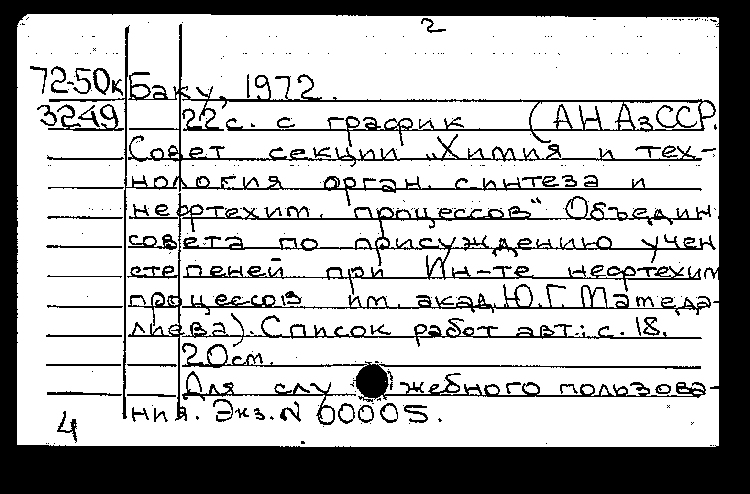 2
72-50к Баку, 1972.
3249 22с. с график (АН АзССР.
Совет секции „Химия и тех-
нология орган. синтеза и
нефтехим. процессов" Объедин.
совета по присуждению учен
степеней при Ин-те нефтехим
процессов им. акад. Ю.Г. Мамеда-
лиева). Список работ авт.: с. 18.
20см.
Для служебного пользова-
ния. Экз. № 00005.
4